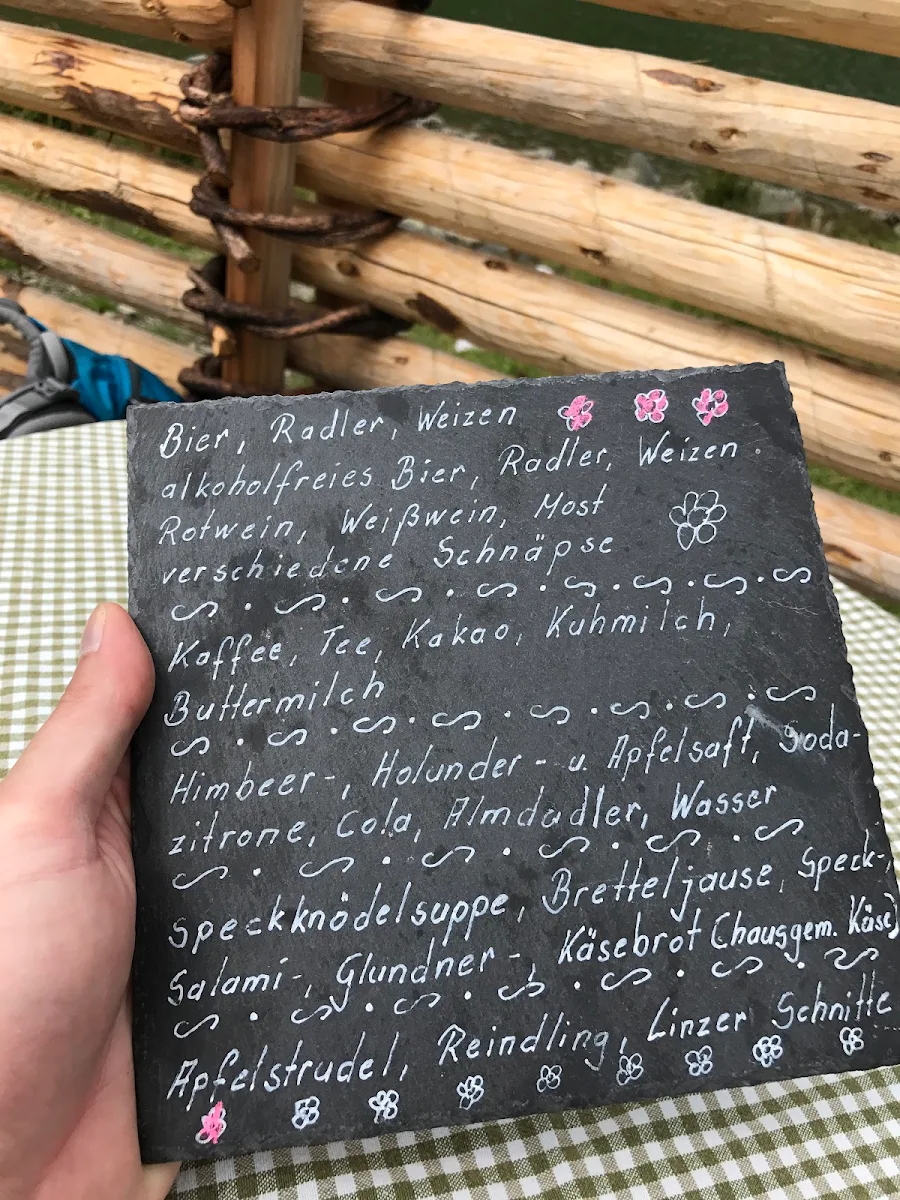 Bier, Radler, Weizen
alkoholfreies Bier, Radler, Weizen.
Rotwein, Weißwein, Most
verschiedene Schnäpse
Kaffee, Tee, Kakao, Kuhmilch,
Buttermilch
Himbeer-, Holunder- u. Apfelsaft, Soda-
zitrone, Cola, Almdudler, Wasser
Speckknödelsuppe, Bretteljause, Speck-,
Salami-, Glundner-, Käsebrot (hausgem. Käse)
Apfelstrudel, Reindling, Linzer Schnitte